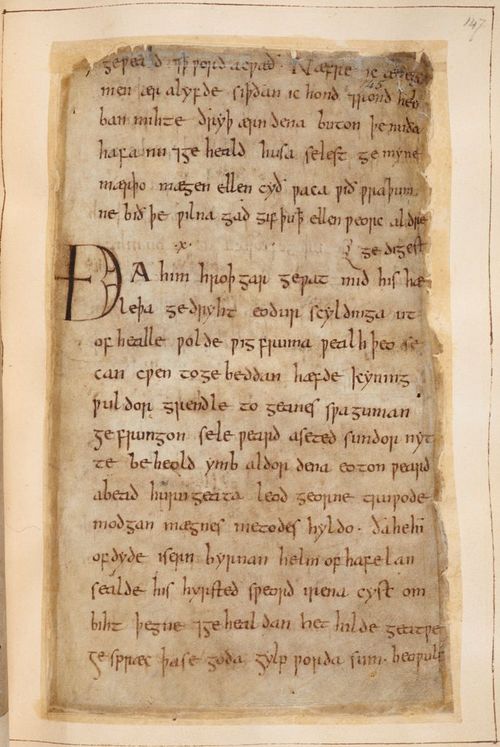 147
geƿeald ⁊ꝥ ƿord acƿæð. Næfre ic æneg
145
men ær alyfde siþðan ic hond ⁊rond heb
ban mihte ðryþ ærn dena buton þe nuða
hafa nu ⁊ge heald husa selest ge myne
mærþo mægen ellen cyð ƿaca ƿið ƿraþum
ne bið þe ƿilna gad gif þu ꝥ ellen ƿeorc aldre
·x· ge digest
ÐA him hroþgar geƿat mid his hæ
leþa ge dryht eodur scyldinga ut
of healle ƿolde ƿig fruma ƿealh þeo se
can cƿen to ge beddan hæfde kyning
ƿuldor grendle to geanes sƿa guman
ge frungon sele ƿeard aseted sundor nyt
te beheold ymb aldor dena eoton ƿeard
abead huru geata leod georne truƿode
modgan mægnes metodes hyldo. ða he hī
of dyde isern byrnan helm of hafelan
sealde his hyrsted sƿeord irena cyst om
biht þegne ⁊ge heal dan het hilde geatƿe
ge spræc þa se goda gylp ƿorda sum. beoƿulf